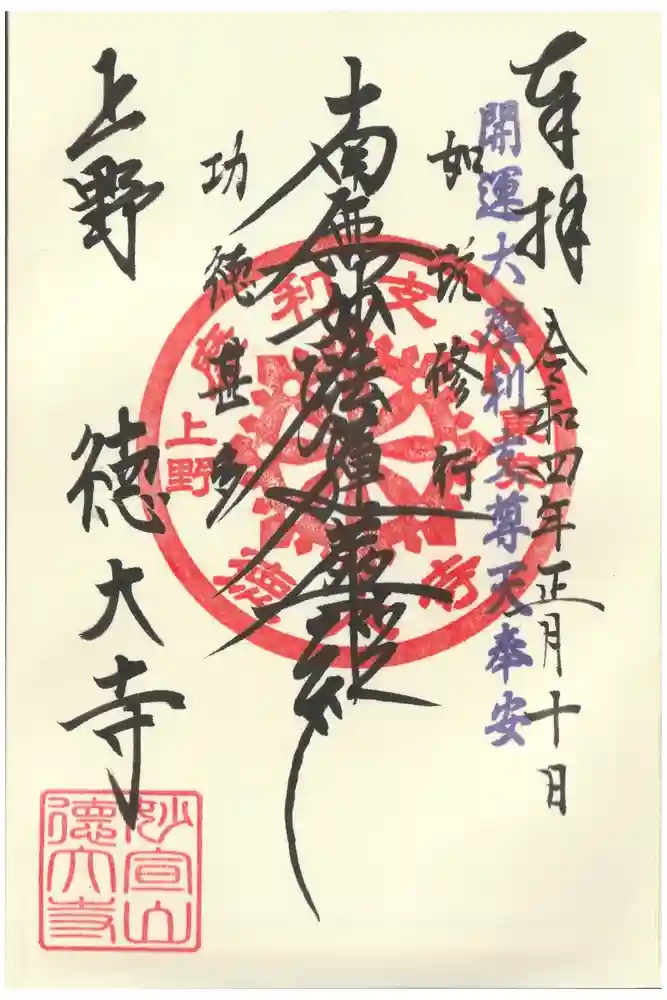 奉拝
令和四年正月十日
開運大摩利支尊天奉安
如説修行
南無妙法蓮華経
功徳甚多
上野
徳大寺
摩利支天
上野
東京
徳大寺
妙宣山
德大寺